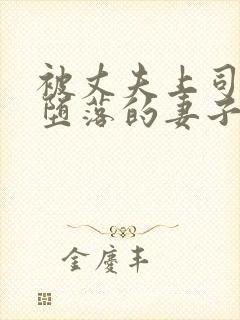 被丈夫上司
堕落的妻子
金庆丰